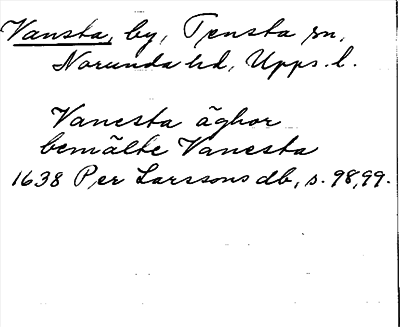 Vansta, by, Tensta sn,
Norunda hd, Upps. l.
Vanesta äghor
bemälte Vanesta
1638 Per Larssons db, s. 98, 99.